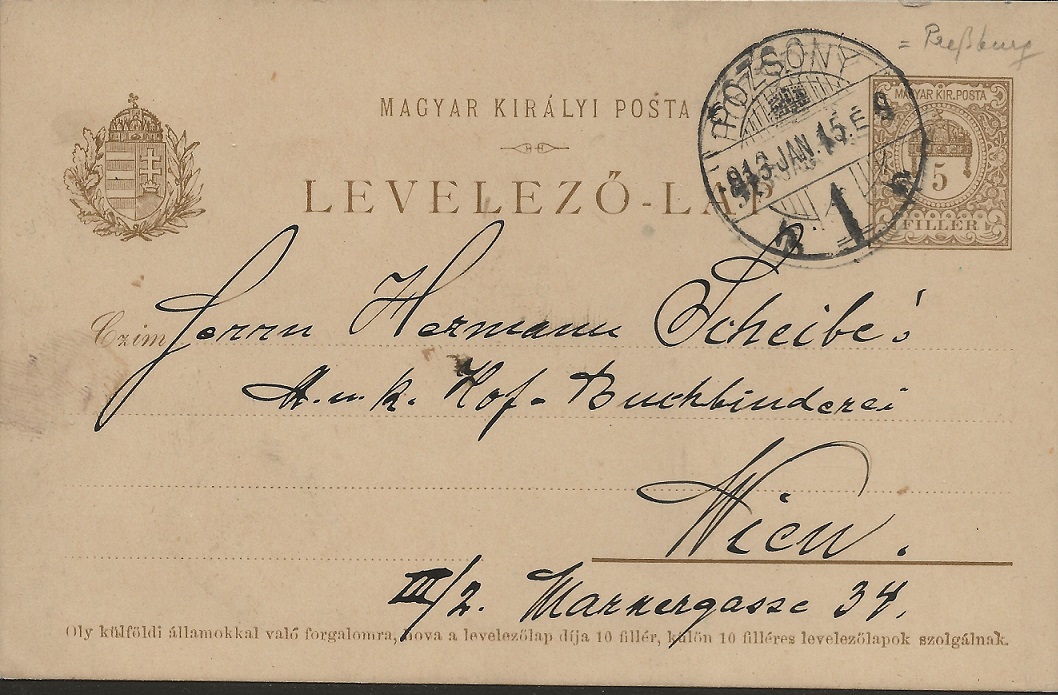 = Preßburg
MAGYAR KIR. POSTA
5
FILLÉR
POZSONY
913 JAN. 15. É 9
1
MAGYAR KIRÁLYI POSTA
LEVELEZŐ-LAP
Czim
Herrn Hermann Scheibe's
k. u. k. Hof-Buchbinderei
Wien.
III/2. Marxergasse 34.
Oly külföldi államokkal való forgalomra, hova a levelezőlap díja 10 fillér, külön 10 filléres levelezőlapok szolgálnak.